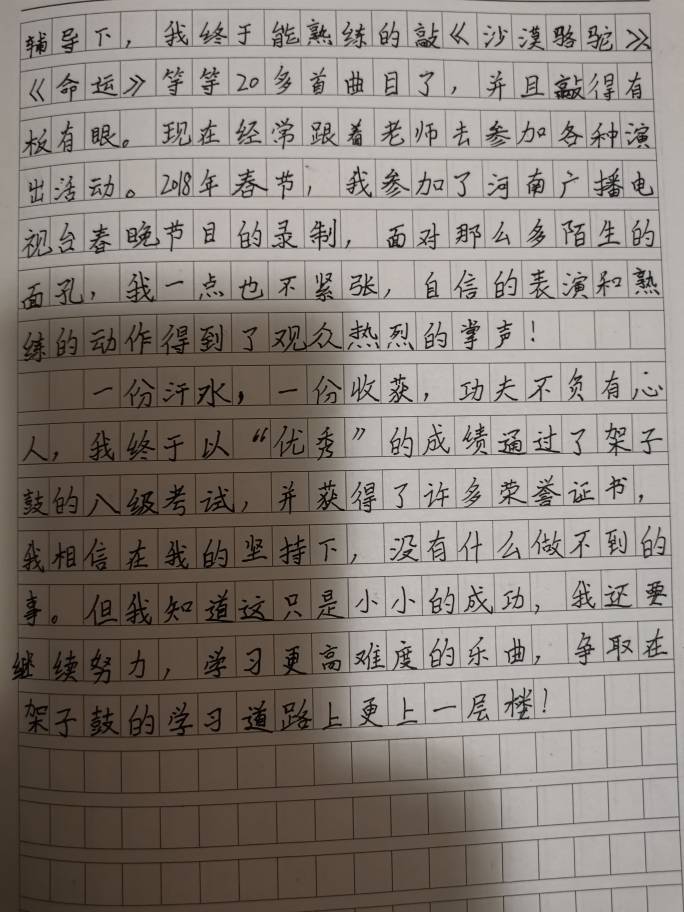 辅导下，我终于能熟练的敲《沙漠骆驼》
《命运》等等20多首曲目了，并且敲得有
板有眼。现在经常跟着老师去参加各种演
出活动。2018年春节，我参加了河南广播电
视台春晚节目的录制，面对那么多陌生的
面孔，我一点也不紧张，自信的表演和熟
练的动作得到了观众热烈的掌声！
一份汗水，一份收获，功夫不负有心
人，我终于以“优秀”的成绩通过了架子
鼓的八级考试，并获得了许多荣誉证书，
我相信在我的坚持下，没有什么做不到的
事。但我知道这只是小小的成功，我还要
继续努力，学习更高难度的乐曲，争取在
架子鼓的学习道路上更上一层楼！